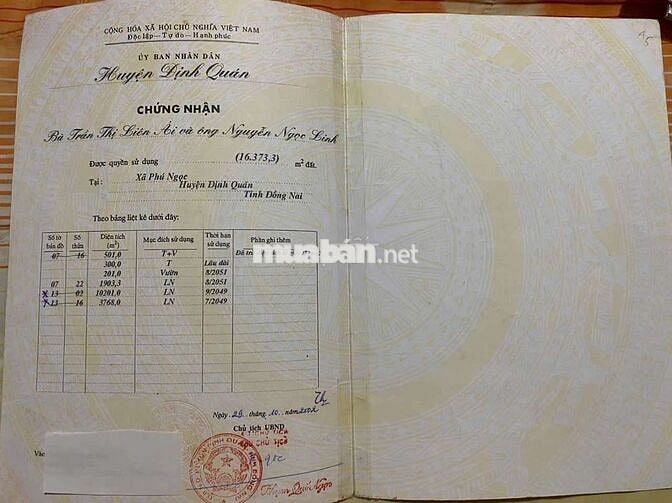 CỘNG HÒA XÃ HỘI CHỦ NGHĨA VIỆT NAM
Độc lập - Tự do - Hạnh phúc
ỦY BAN NHÂN DÂN
Huyện Định Quán
CHỨNG NHẬN
Bà Trần Thị Liên Ái và ông Nguyễn Ngọc Linh
Được quyền sử dụng (16.373,3) m² đất.
Tại: Xã Phú Ngọc
Huyện Định Quán
Tỉnh Đồng Nai
Theo bảng liệt kê dưới đây:
Số tờ bản đồ | Số thửa | Diện tích (m²) | Mục đích sử dụng | Thời hạn sử dụng | Phần ghi thêm
07 16 501,0 T+V Đã
300,0 T Lâu dài
201,0 Vườn 8/2051
07 22 1903,3 LN 8/2051
x 13 02 10201,0 LN 9/2049
x 13 16 3768,0 LN 7/2049
muaban.net
Ngày 29 tháng 10 năm 2002
Chủ tịch UBND
CHỦ TỊCH
Vào